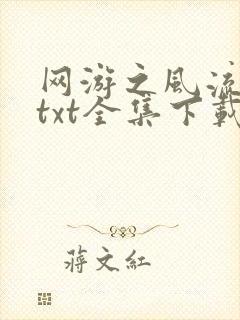 网游之风流
txt全集下载
蒋文红